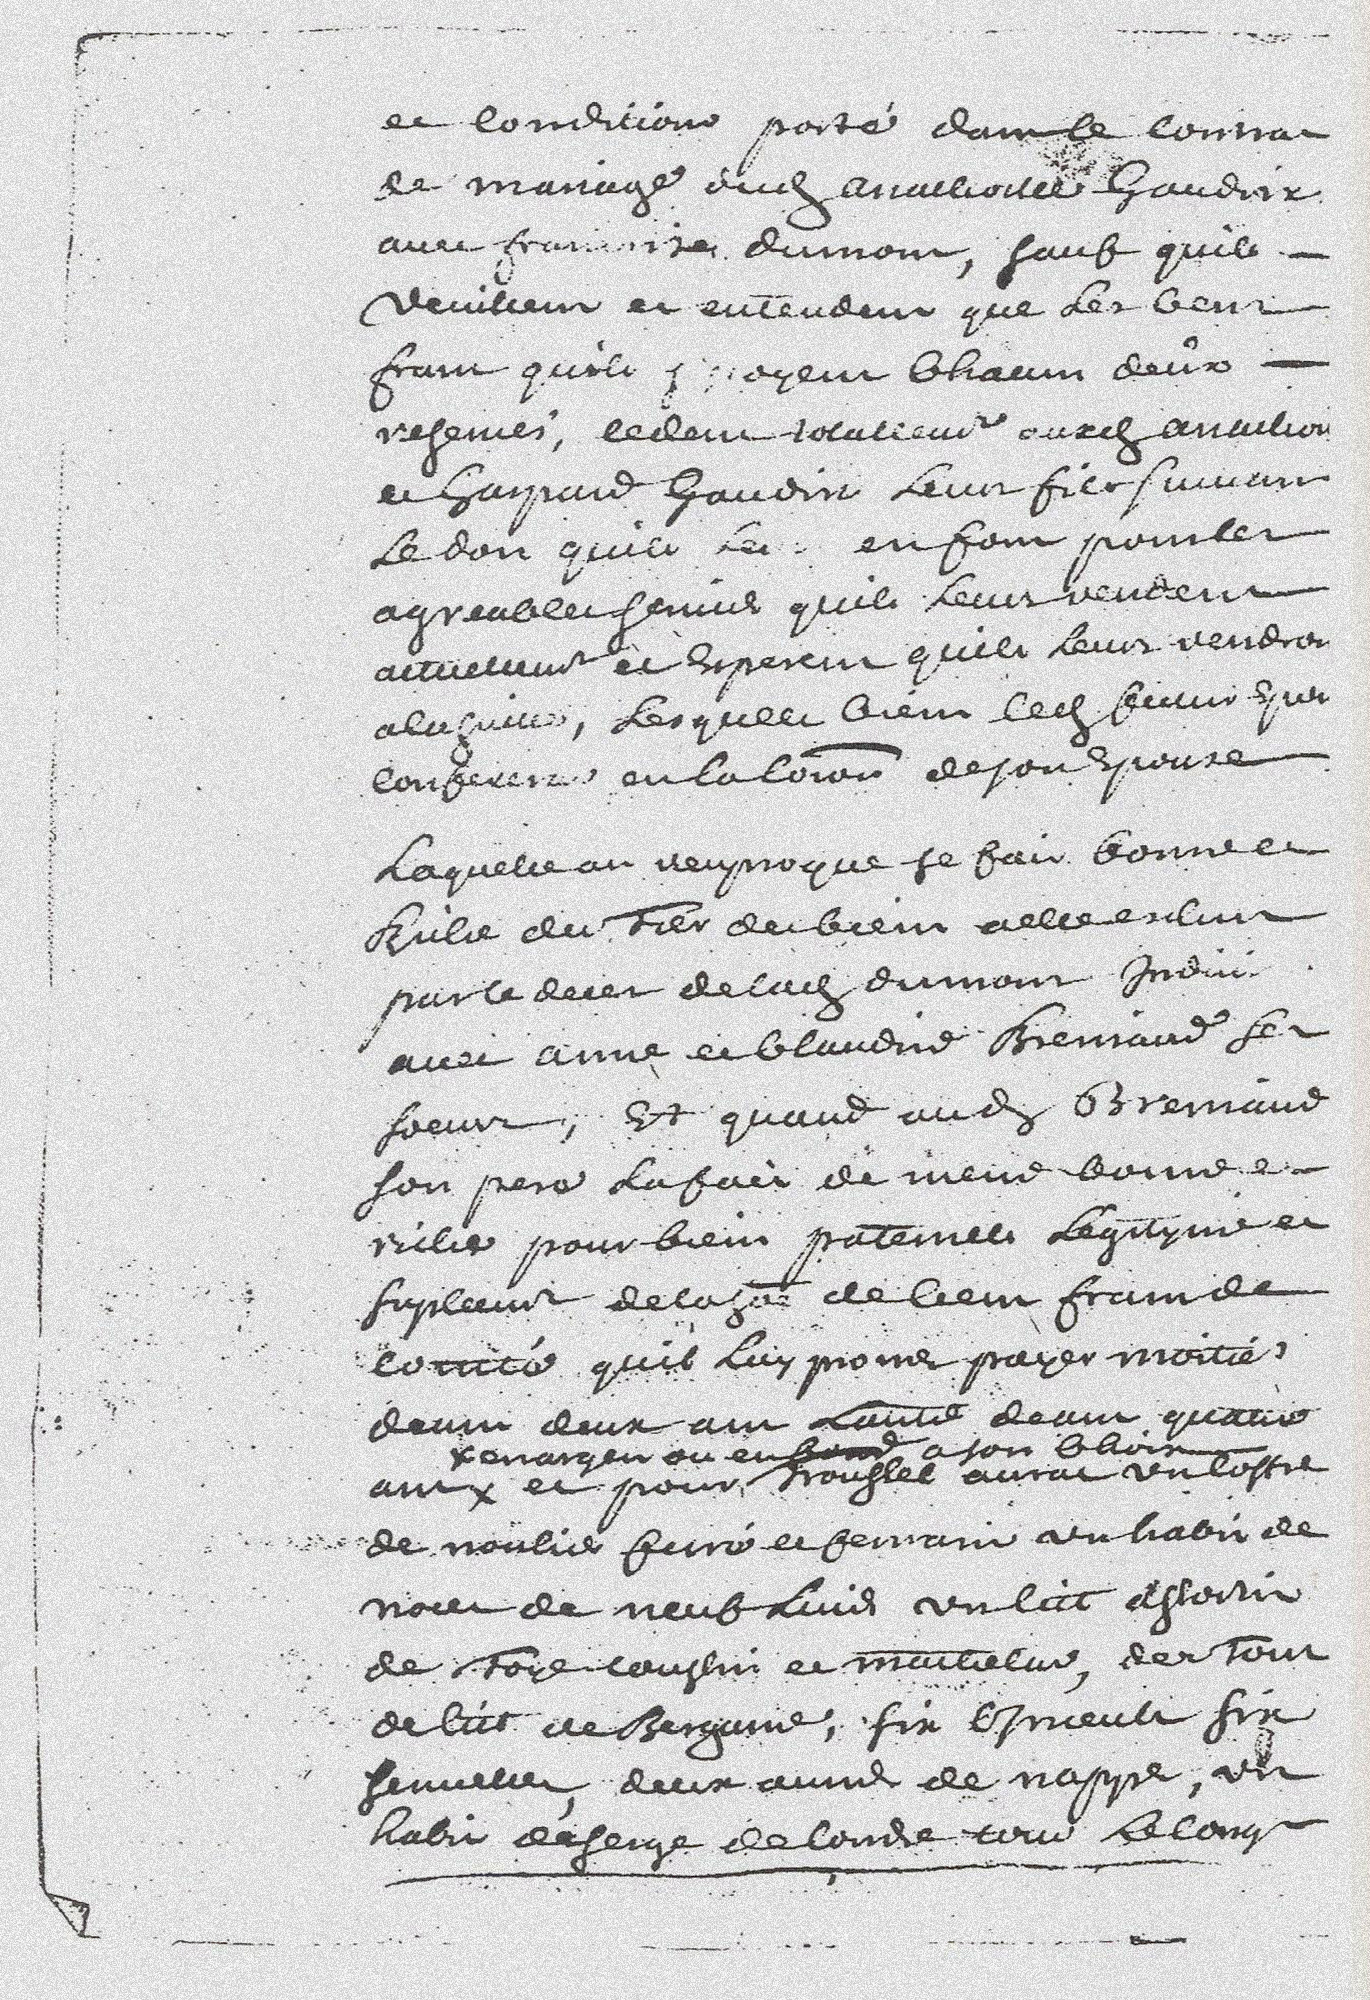 et conditions porté dans le contrat
de mariage dud Anathoile Gaudin
avec francoise dumont, sauf quils
veuillent et entendent que les cent
francs quils payent chacun deux
reserués, cedent totallement auxd Anathoi
et Gaspard Gaudin leurs fils suivant
le don quils leur en font pour les
agreables seruices quils leurs rendent
actuellement et esperent quils leurs rendron
alaquelle, lesquels biens led futur espou
conferera en la coion de son espouse
Laquelle au reciproque se fait bonne et
Riche du tier des biens a elle eschut
par le deces de lad dumont Indiuis
avec anne et Claudine Breniaud ses
soeurs, Et quand aud Breniaud
son pere la fait de meme bonne et
riche pour biens paternels legityme et
suplement de la soe de cent francs de
comté quil luy promet payer moitié
dans deux ans Lautre dans quatre
x en argent ou en fond a son choix
ans x et pour troussel aurat un coffre
de noulier ferré et fermant un habit de
noces de neuf Louis un lict assortis
de toye coussin et mattelas, des tour
de lict de Bergame, six linceuls six
seruiettes, deux aunes de nappe, un
habit de serge de londre tous le long